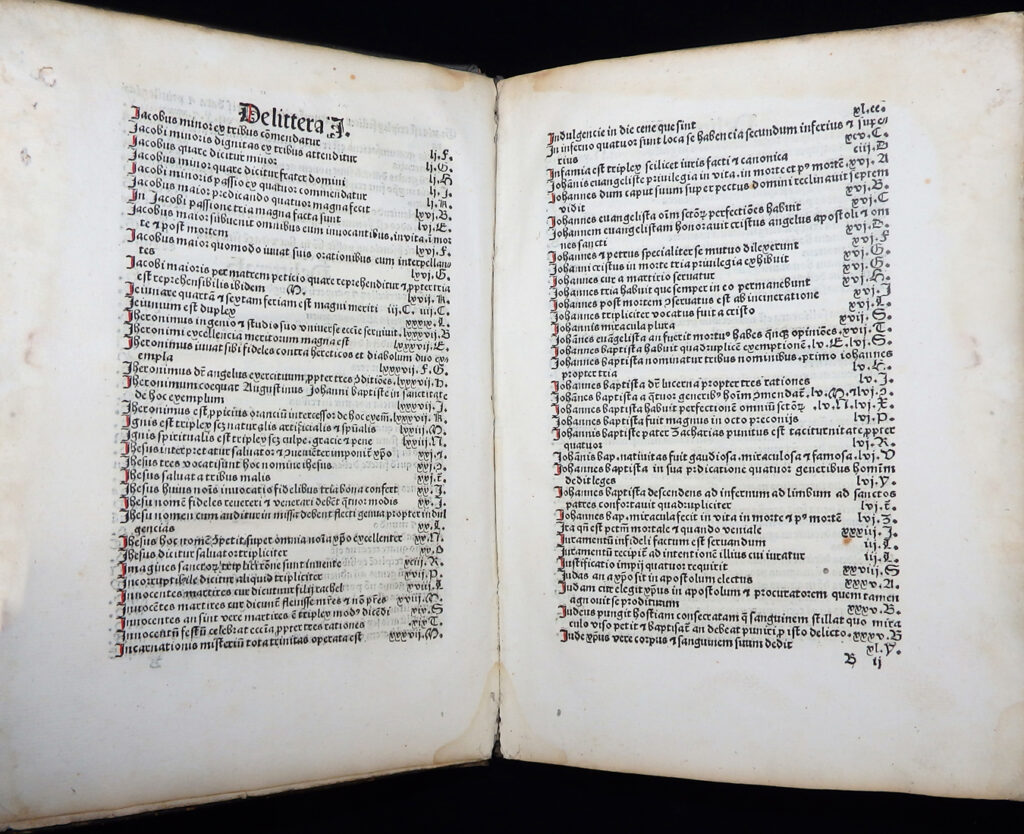 De littera J.
Jacobus minor ex tribus cõmendatur lj. F.
Jacobi minoris dignitas ex tribus attenditur lj. G.
Jacobus quare dicitur minor lj. H
Jacobus minor quare dicitur frater domini lj. J.
Jacobi minoris passio ex quatuor commendatur lj. K.
Jacobus maior predicando quatuor magna fecit lxvj. B.
In Jacobi passione tria magna facta sunt lvj. E.
Jacobus maior subuenit omnibus eum inuocantibus, in vita, ĩ mor
te ⁊ post mortem lxvj. F.
Jacobus maior quomodo iuuat suis orationibus eum interpellan
tes lxvj. G.
Jacobi maioris per matrem peticio quare reprehenditur ⁊ ꝓpter tria
est reprehensibilis ibidem M. lxvij. K.
Jeiunare quartã ⁊ sextam feriam est magni meriti iij. C. iiij. C.
Jeiunium est duplex xxxx. L.
Jheronimi ingenio ⁊ studio suo vniuerse eccñe seruiuit. lxxxvij. B
Jheronimi excellencia meritorum magna est lxxxvij. E.
Jheronimus iuuat sibi fideles contra hereticos et diabolum duo ex
empla lxxxvij. F. G.
Jheronimus dr̃ angelus exercituum, ꝓpter tres ꝯditiões. lxxxvij. D.
Jheronimum coequat Augustinus Johanni baptiste in sanctitate
de hoc exemplum lxxxvij. J.
Jheronimus est ꝓpicius oranciũ intercessor de hoc exem. lxxxvij. K.
Ignis est triplex scʒ naturalis artificialis ⁊ sp̃ualis lxxiij. M.
Ignis spiritualis est triplex scʒ culpe. gracie ⁊ pene lxxiij. N.
Jhesus interpretatur saluator ⁊ ꝯuenienter imponit̃ xp̃o xxj. ⁊.
Jhesus tres vocati sunt hoc nomine ihesus xxj. ꝯ.
Jhesus saluat a tribus malis xxj. ẽ.
Jhesus huius nois̃ inuocatio fidelibus tria bona confert xx. J.
Jhesu nomẽ fideles reuereri ⁊ venerari debẽt q̃tuor modis xx. J.
Jhesu nomen cum auditur in missa debent flecti genua propter indul
gencias xx. L.
Jhesus hoc nomẽ ꝯpetit, super omnia noĩa xp̃o excellenter xx. N.
Jhesus dicitur saluator tripliciter xx. O
Imagines sanctoꝝ, triplici rõne sunt inuente xciij. R.
Incorruptibile dicitur aliquid tripliciter xvij. P.
Innocentes martires cur dicuntur filij rachel xviij. L.
Innocẽtes martires cur dicunt̃ fleuisse mr̃es ⁊ nõ pr̃es xviij. M.
Innocentes an sint vere martires cum ẽ triplex modꝰ dicẽdi xix. S
Innocentũ festũ celebrat eccĩa, ꝓpter tres rationes xix. T.
Incarnationis misteriũ tota trinitas operata est xxxvij. M.
Indulgencie in die cene que sint xl. ee.
In inferno quatuor sunt loca se habencia secundum inferius ⁊ supe/
rius xcv. C.
Infamia est triplex scilicet iuris facti ⁊ canonica ciij. D
Johãnis euangeliste priuilegia in vita. in morte et pꝰ mortẽ. xvj. A
Johannes dum caput suum super pectus domini reclinauit septem
vidit xvj. B.
Johannes euangelista oĩm sctõꝝ perfectiões habuit xvj. C
Johannem euangelistam honorauit cristus angelus apostoli ⁊ om
nes sancti xvj. D.
Johannes ⁊ petrus specialiter se mutuo dilexerunt xvj. F
Johanni cristus in morte tria priuilegia exhibuit xvj. G.
Johannes cur a martirio seruatur xvj. G.
Johannes tria habuit que semper in eo permanebunt xvj. H.
Johannes post mortem ꝯseruatus est ab incineratione xvj. J
Johannes tripliciter vocatus fuit a cristo xvj. L.
Johannis miracula plura xvij. S.
Johãnes euãgelista an fuerit mortuꝰ habes q̃nqʒ opiniões. xvij. T.
Johãnes baptista habuit quadruplicẽ exemptionẽ. lv. E. lvj. S.
Johãnes baptista nominatur tribus nominibus. primo iohannes
propter tria lv. K.
Johãnes baptista dr̃ lucerna propter tres rationes lv. J.
Johãnes baptista a q̃tuor generibꝰ hoĩm ꝯmendat̃. lv. M. lvj. ꝯ.
Johãnes baptista habuit perfectionẽ omniũ sctõꝝ. lv. N. lvj. X.
Johãnes baptista fuit magnus in octo preconijs lv. P.
Johannis baptiste pater Zacharias punitus est taciturnitate ꝓpter
quatuor lvj. R.
Johãnis bap. natiuitas fuit gaudiosa. miraculosa ⁊ famosa. lvj. V
Johannes baptista in sua predicatione quatuor generibus hominũ
dedit leges lvj. Y.
Johannes baptista descendens ad infernum ad limbum ad sanctos
patres confortauit quadrupliciter lvj. ẽ.
Johannes bap. miracula fecit in vita in morte ⁊ pꝰ mortẽ lvj. Z.
Ira qñ est petm̃ mortale ⁊ quando veniale xxxiij. J.
Iuramentũ infideli factum est seruandum iij. L.
Iuramentũ recipit̃ ad intentionẽ illius cui iuratur iij. L.
Iustificatio impij quatuor requirit xxviij. S
Judas an a xp̃o sit in apostolum electus xxxv. A.
Judam cur elegit xp̃us in apostolum ⁊ procuratorem quem tamen
agnouit se proditurum xxxv. B.
Judeus pungit hostiam consecratam q̃ sanguinem stillat quo mira
culo viso petit ⁊ baptisat̃ an debeat puniri, ꝓ isto delicto. xxxv. B
Jude xp̃us vere corpus ⁊ sanguinem suum dedit xl. V.
B ij